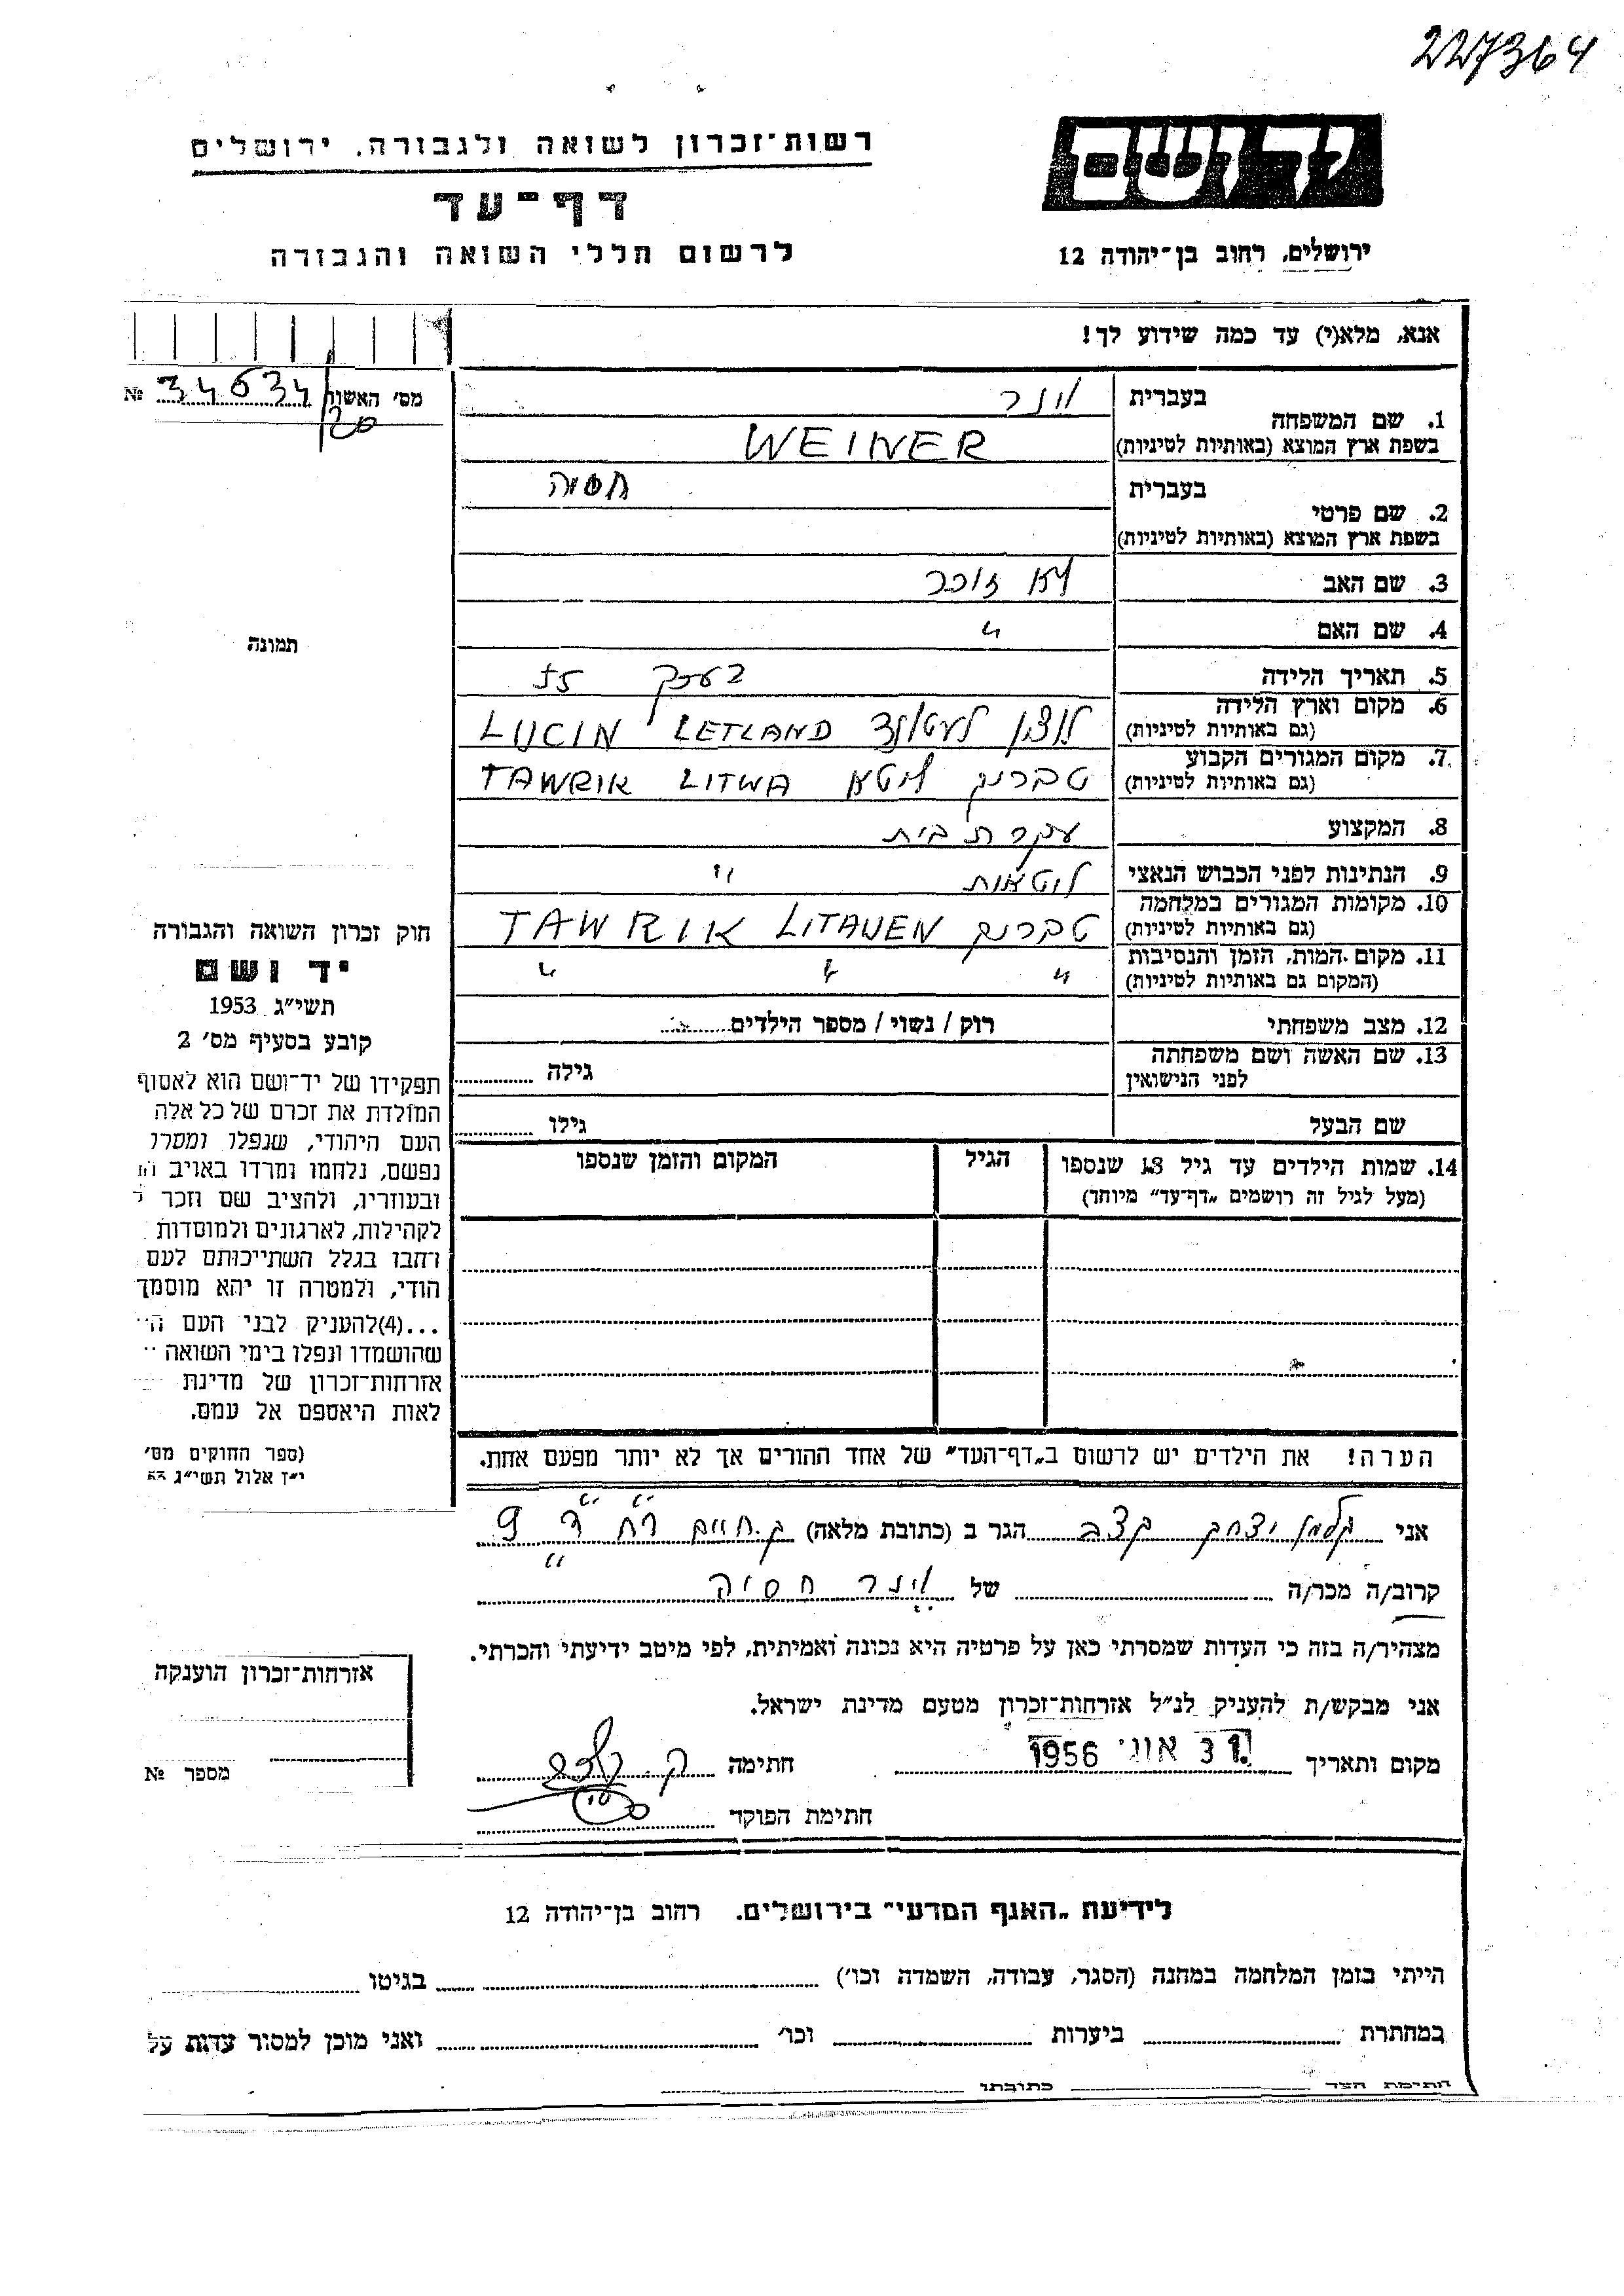 227364
רשות־זכרון לשואה ולגבורה. ירושלים
דף־עד
לרשום חללי השואה והגבורה
יד ושם
ירושלים, רחוב בן־יהודה 12
אנא, מלא(י) עד כמה שידוע לך!
מס' האשור 34634 №
20
1. שם המשפחה
בעברית וינר
בשפת ארץ המוצא (באותיות לטיניות) WEINER
2. שם פרטי
בעברית חסיה
בשפת ארץ המוצא (באותיות לטיניות)
3. שם האב לא זוכר
4. שם האם "
תמונה
5. תאריך הלידה בערך 55
6. מקום וארץ הלידה
(גם באותיות לטיניות) לוצין לעטלנד LETLAND LUCIN
7. מקום המגורים הקבוע
(גם באותיות לטיניות) טבריג ליטא LITWA TAWRIK
8. המקצוע עקרת בית
9. הנתינות לפני הכבוש הנאצי ליטאית "
10. מקומות המגורים במלחמה
(גם באותיות לטיניות) טבריג LITAUEN TAWRIK
11. מקום המות, הזמן והנסיבות
(המקום גם באותיות לטיניות) " " "
12. מצב משפחתי רוק / נשוי / מספר הילדים
13. שם האשה ושם משפחתה
לפני הנישואין גילה
שם הבעל גילו
14. שמות הילדים עד גיל 18 שנספו
(מעל לגיל זה רושמים „דף־עד" מיוחד)
הגיל
המקום והזמן שנספו
חוק זכרון השואה והגבורה
יד ושם
תשי"ג 1953
קובע בסעיף מס' 2
תפקידו של יד־ושם הוא לאסוף
המולדת את זכרם של כל אלה
העם היהודי, שנפלו ומסרו
נפשם, נלחמו ומרדו באויב
ובעוזריו, ולהציב שם וזכר
לקהילות, לארגונים ולמוסדות
רחבו בגלל השתייכותם לעם
הודי, ולמטרה זו יהא מוסמך
...(4)להעניק לבני העם
שהושמדו ונפלו בימי השואה
אזרחות־זכרון של מדינת
לאות היאספם אל עמם.
(ספר החוקים מס'
י"ז אלול תשי"ג 53
הערה! את הילדים יש לרשום ב„דף־העד" של אחד ההורים אך לא יותר מפעם אחת.
אני קלמן יצחק קצב הגר ב (כתובת מלאה) ק. חיים 9
קרוב/ה מכר/ה של וינר חסיה
מצהיר/ה בזה כי העדות שמסרתי כאן על פרטיה היא נכונה ואמיתית, לפי מיטב ידיעתי והכרתי.
אני מבקש/ת להעניק לנ"ל אזרחות־זכרון מטעם מדינת ישראל.
מקום ותאריך 31 אוג' 1956 חתימה ק. קצב
חתימת הפוקד
אזרחות־זכרון הוענקה
מספר №
לידיעת „האגף המדעי" בירושלים. רחוב בן־יהודה 12
הייתי בזמן המלחמה במחנה (הסגר, עבודה, השמדה וכו') בגיטו
במחתרת ביערות וכו' ואני מוכן למסור עדות על
חתימת העד כתובתו